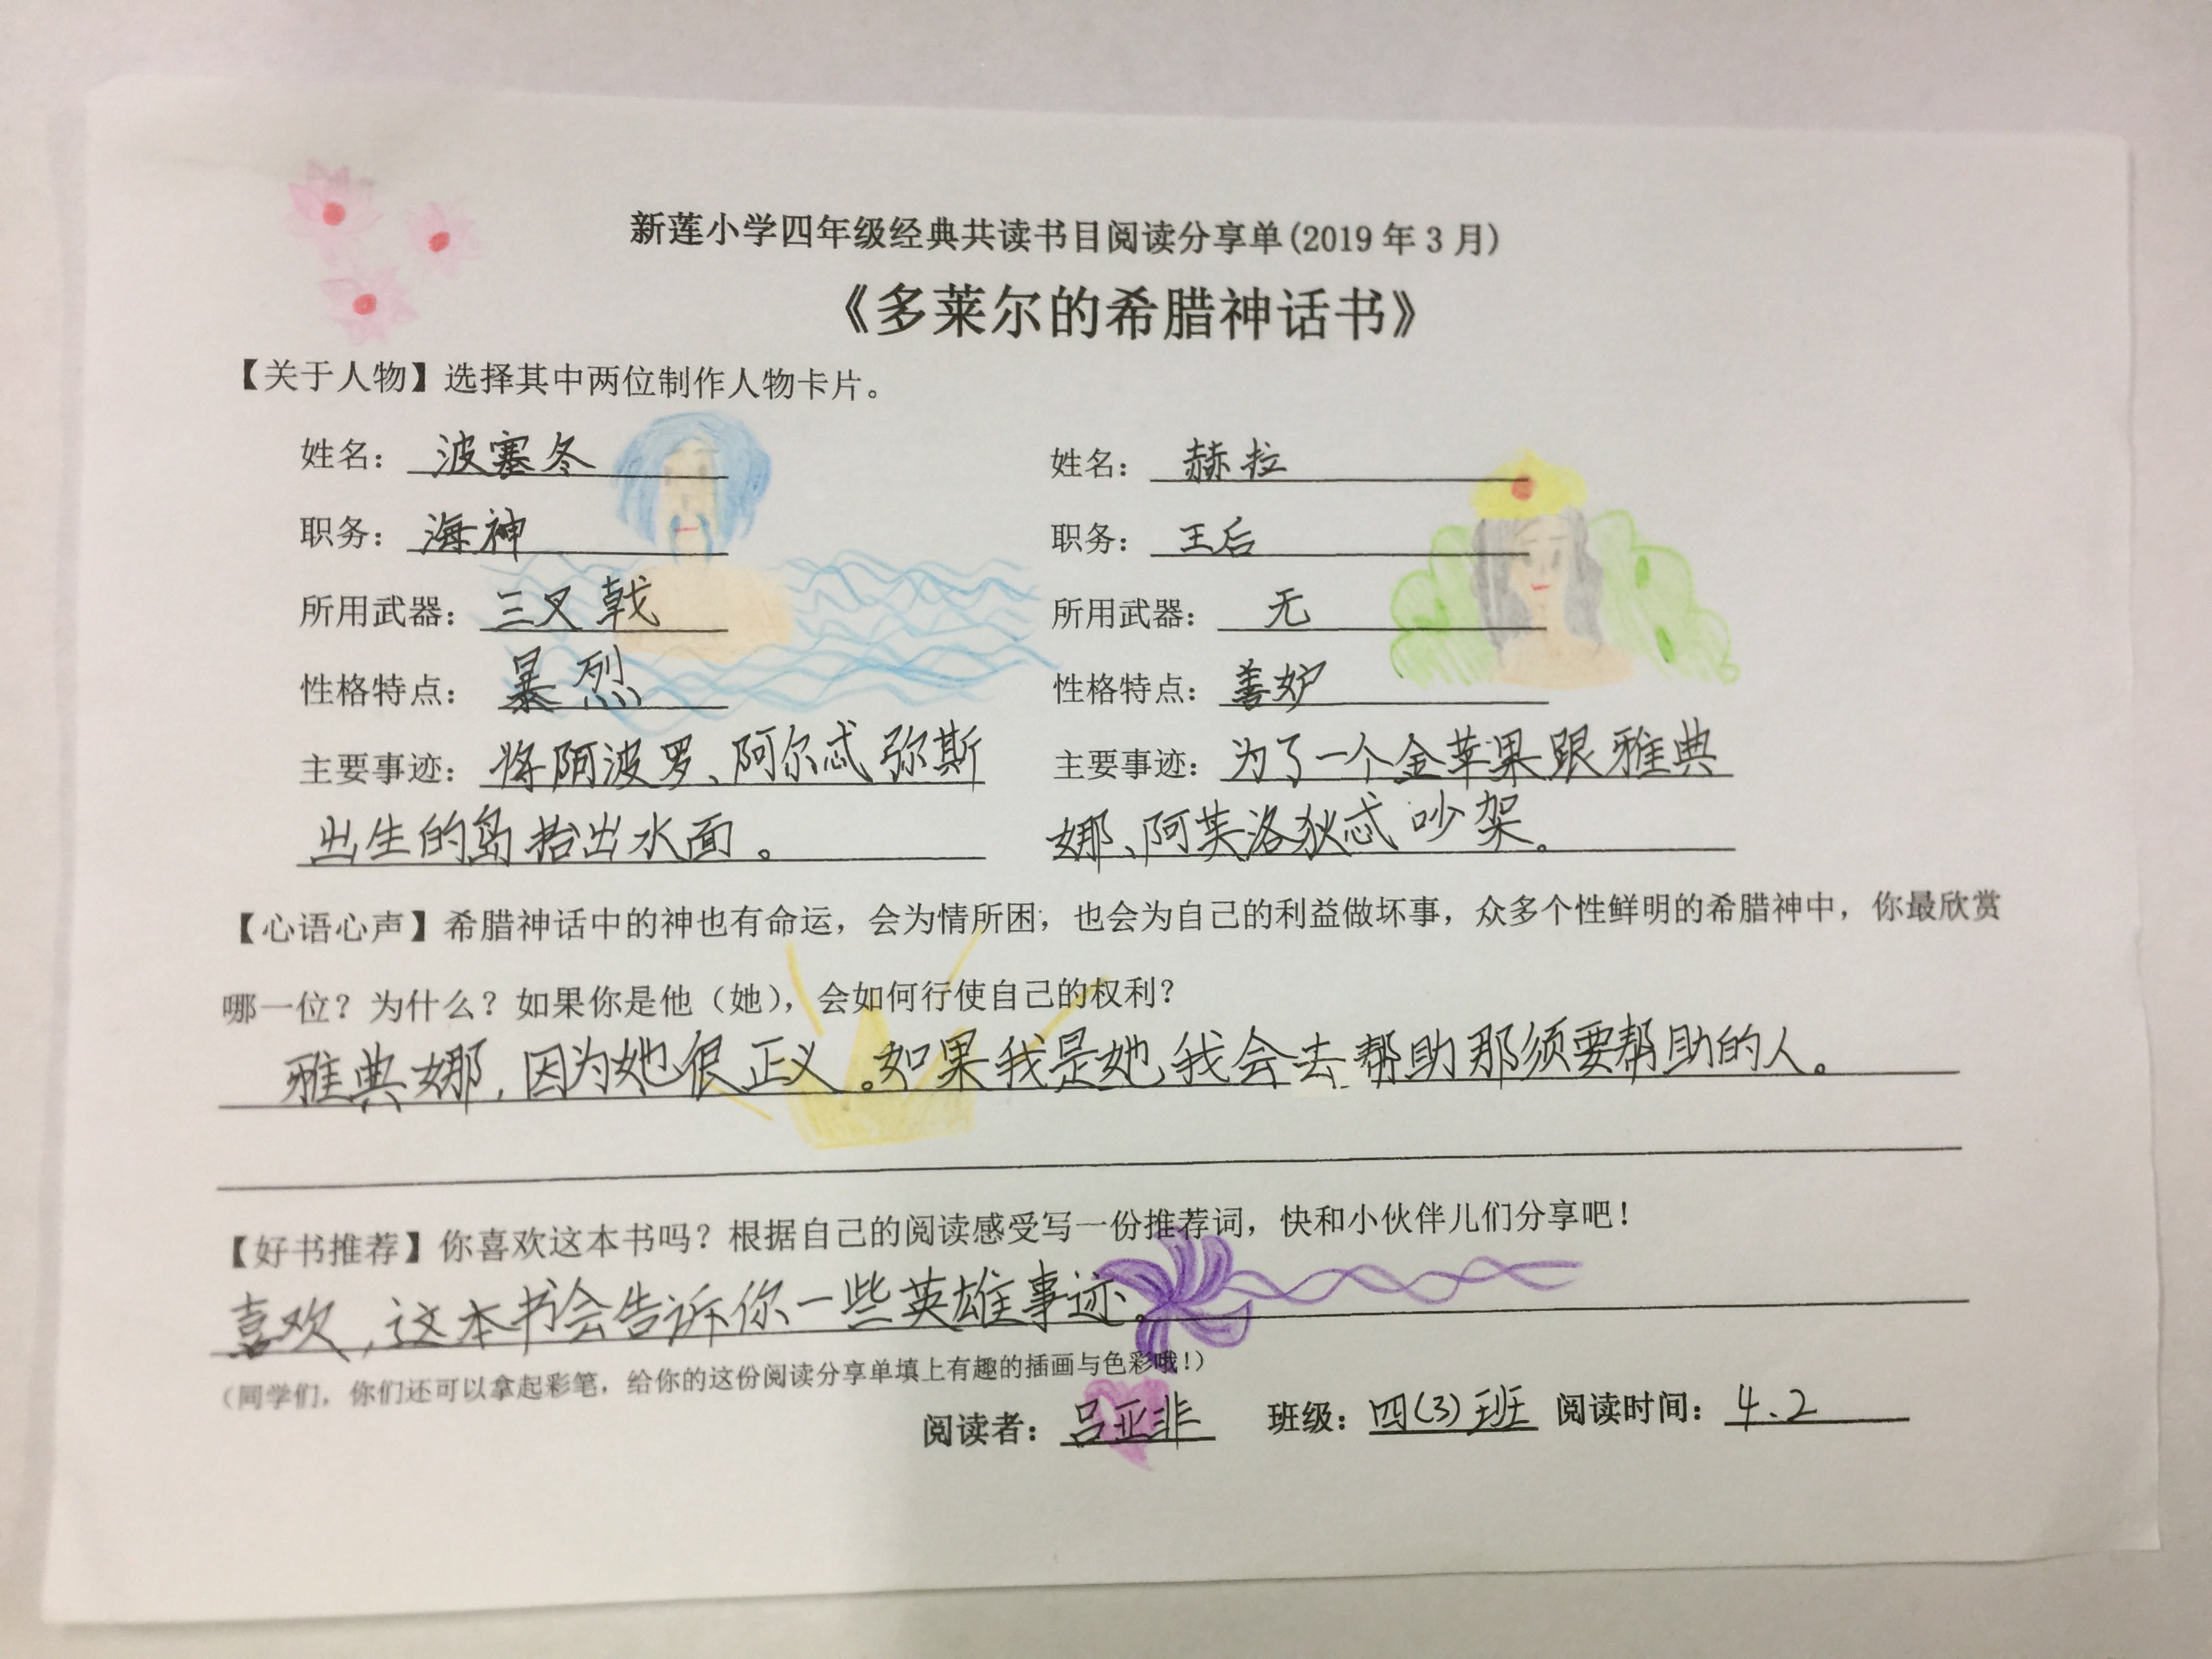 新莲小学四年级经典共读书目阅读分享单(2019年3月)
《多莱尔的希腊神话书》
【关于人物】选择其中两位制作人物卡片。
姓名：波塞冬
职务：海神
所用武器：三叉戟
性格特点：暴烈
主要事迹：将阿波罗、阿尔忒弥斯
出生的岛抬出水面。
姓名：赫拉
职务：王后
所用武器：无
性格特点：善妒
主要事迹：为了一个金苹果跟雅典
娜、阿芙洛狄忒吵架。
【心语心声】希腊神话中的神也有命运，会为情所困，也会为自己的利益做坏事，众多个性鲜明的希腊神中，你最欣赏
哪一位？为什么？如果你是他（她），会如何行使自己的权利？
雅典娜，因为她很正义。如果我是她，我会去帮助那须要帮助的人。
【好书推荐】你喜欢这本书吗？根据自己的阅读感受写一份推荐词，快和小伙伴儿们分享吧！
喜欢，这本书会告诉你一些英雄事迹。
（同学们，你们还可以拿起彩笔，给你的这份阅读分享单填上有趣的插画与色彩哦！）
阅读者：吕亚非 班级：四(3)班 阅读时间：4.2